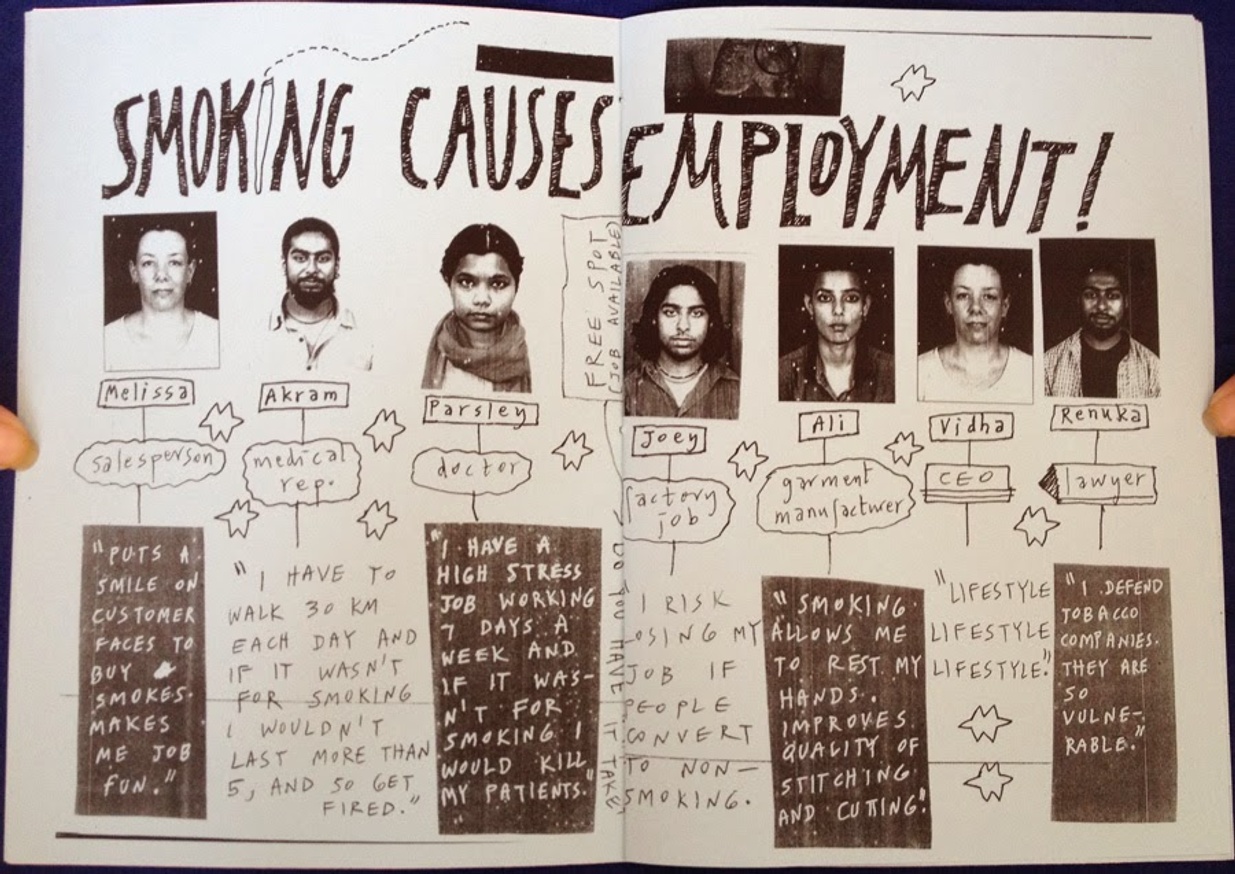 SMOKING CAUSES EMPLOYMENT!
FREE SPOT
(JOB AVAILABLE)
Melissa
salesperson
"PUTS A
SMILE ON
CUSTOMER
FACES TO
BUY
SMOKES.
MAKES
ME JOB
FUN."
Akram
medical
rep.
"I HAVE TO
WALK 30 KM
EACH DAY AND
IF IT WASN'T
FOR SMOKING
I WOULDN'T
LAST MORE THAN
5, AND SO GET
FIRED."
Parsley
doctor
"I HAVE A
HIGH STRESS
JOB WORKING
7 DAYS A
WEEK AND
IF IT WAS-
N'T FOR
SMOKING I
WOULD KILL
MY PATIENTS."
DO YOU HAVE IT TAKE
Joey
factory
job
I RISK
LOSING MY
JOB IF
PEOPLE
CONVERT
TO NON-
SMOKING.
Ali
garment
manufacturer
"SMOKING
ALLOWS ME
TO REST MY
HANDS.
IMPROVES
QUALITY OF
STITCHING
AND CUTTING."
Vidha
CEO
"LIFESTYLE
LIFESTYLE
LIFESTYLE."
Renuka
lawyer
"I DEFEND
TOBACCO
COMPANIES.
THEY ARE
SO
VULNE-
RABLE."